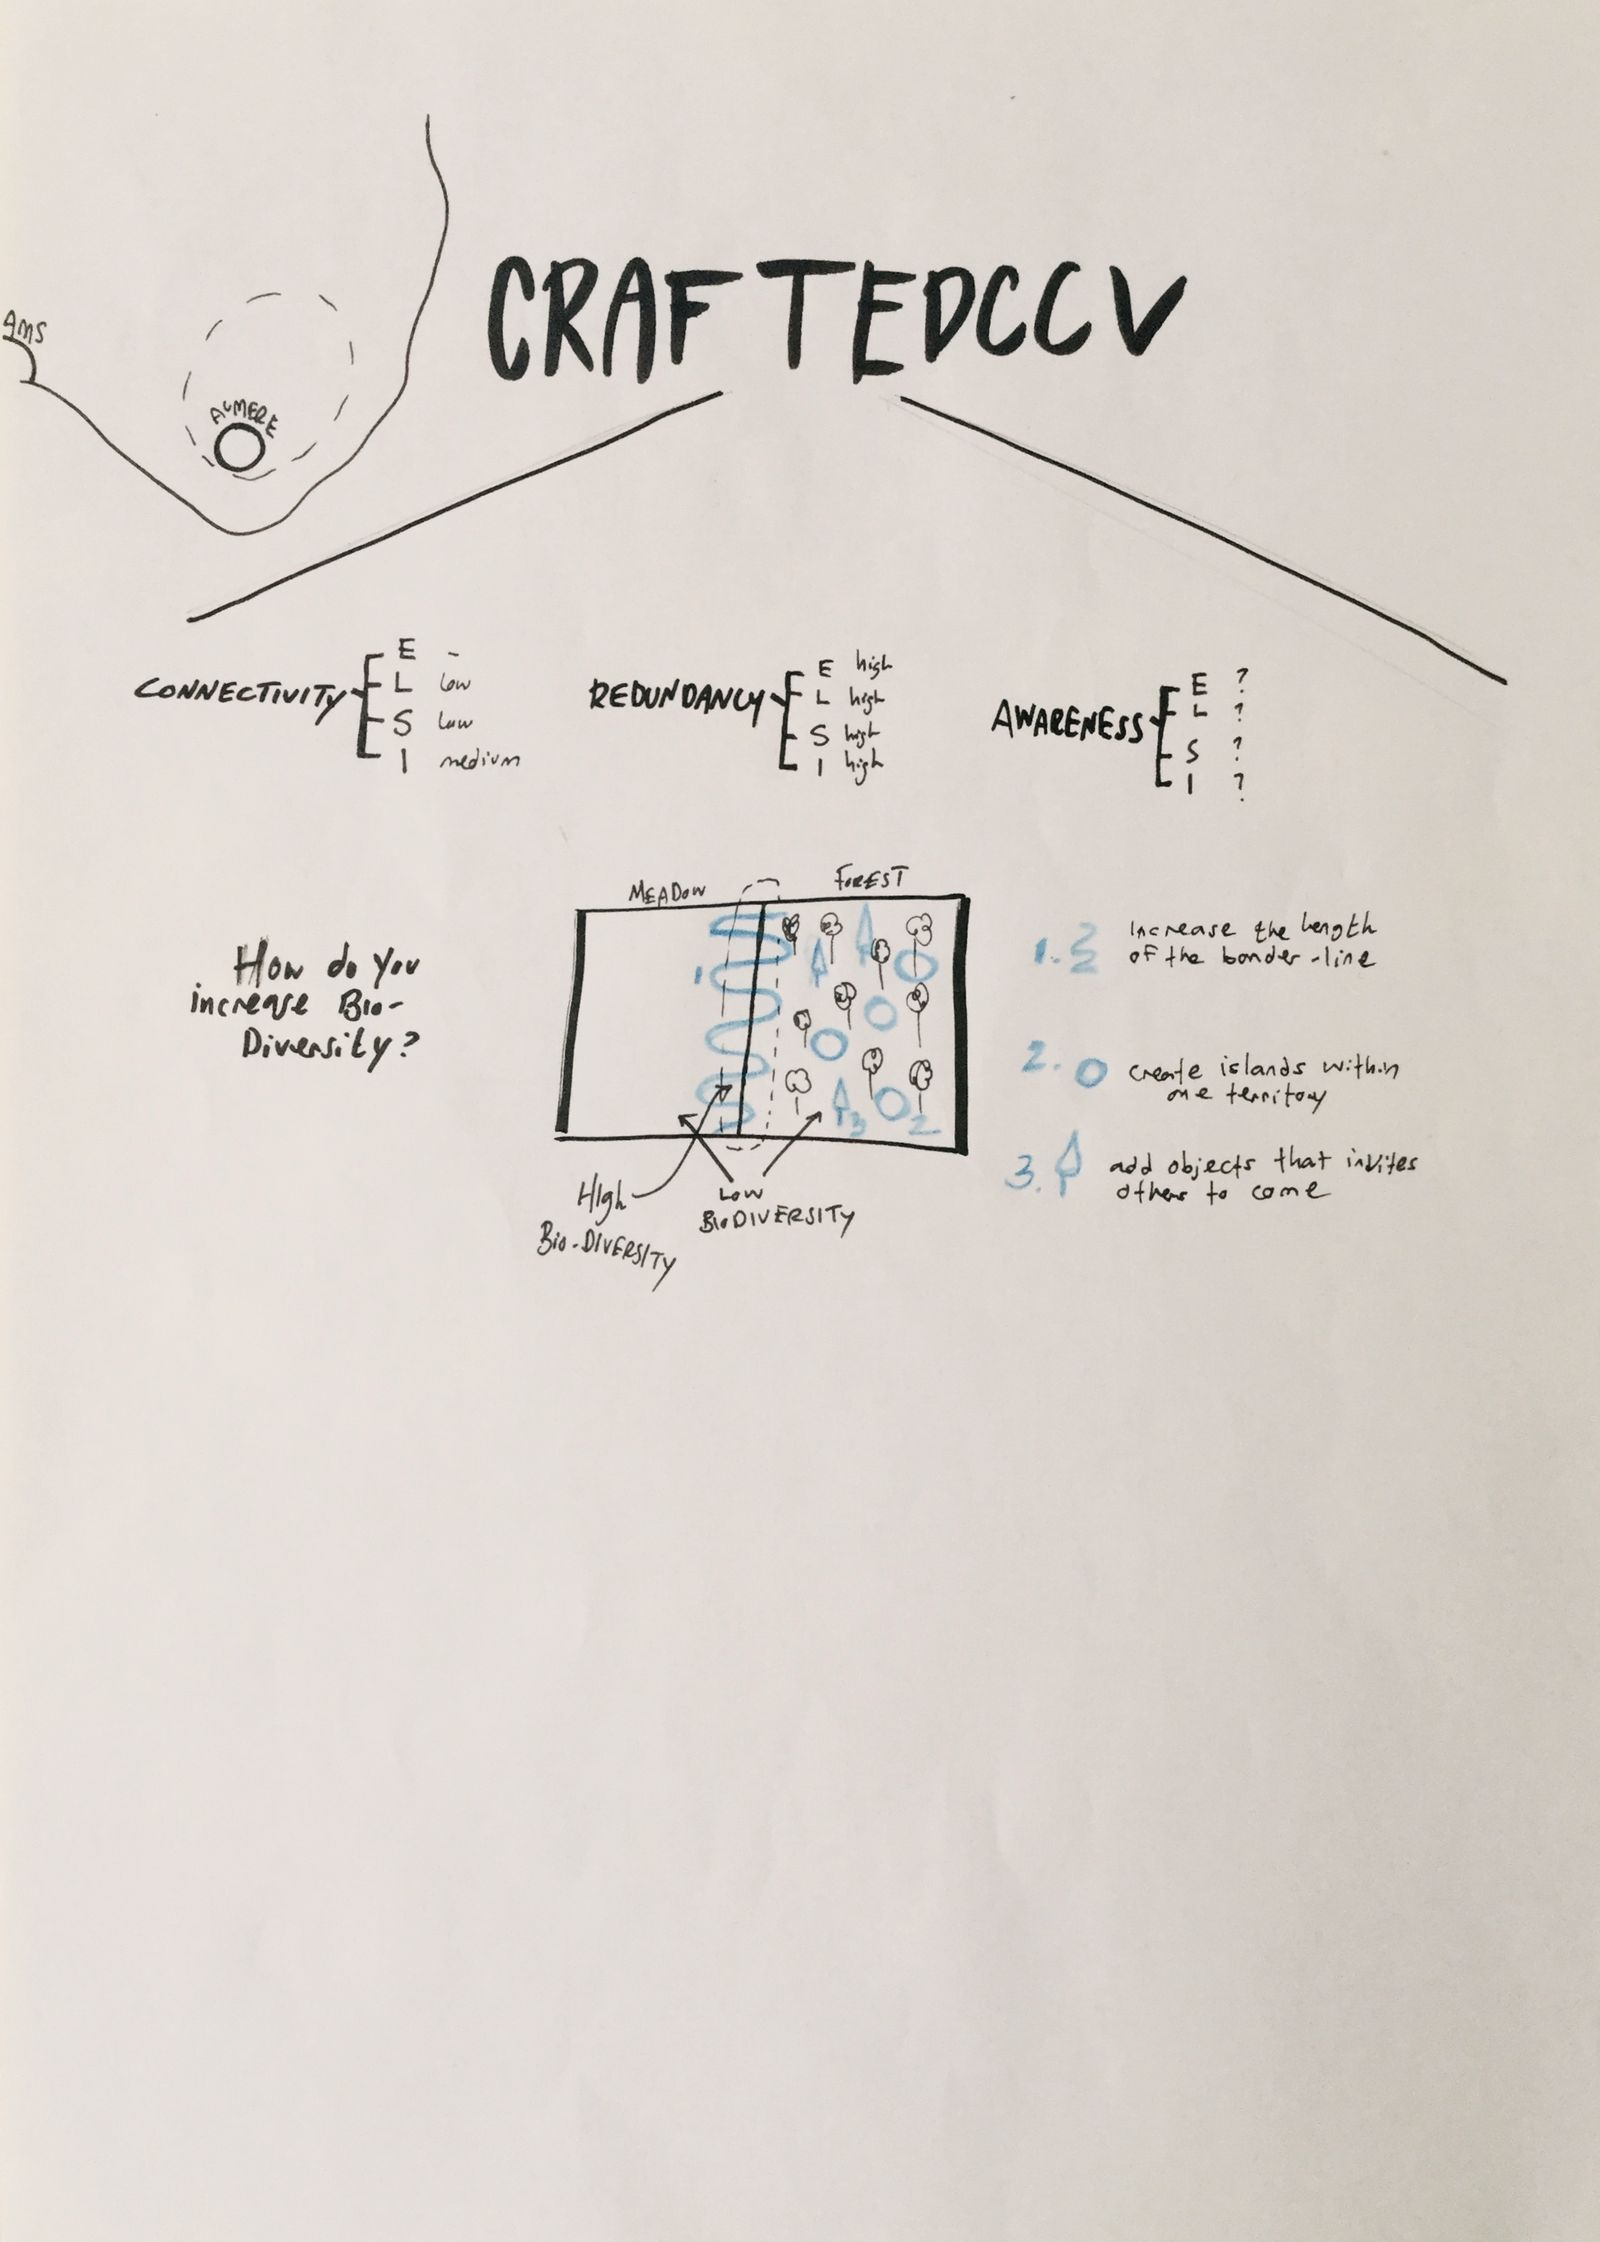 AMS
ALMERE
CRAFTEDCCV
CONNECTIVITY
E -
L low
S low
I medium
REDUNDANCY
E high
L high
S high
I high
AWARENESS
E ?
L ?
S ?
I ?
How do you
increase Bio-
Diversity?
MEADOW
FOREST
1
3
2
High
Bio-DIVERSITY
Low
BioDIVERSITY
1. increase the length
of the border-line
2. create islands within
one territory
3. add objects that invites
others to come